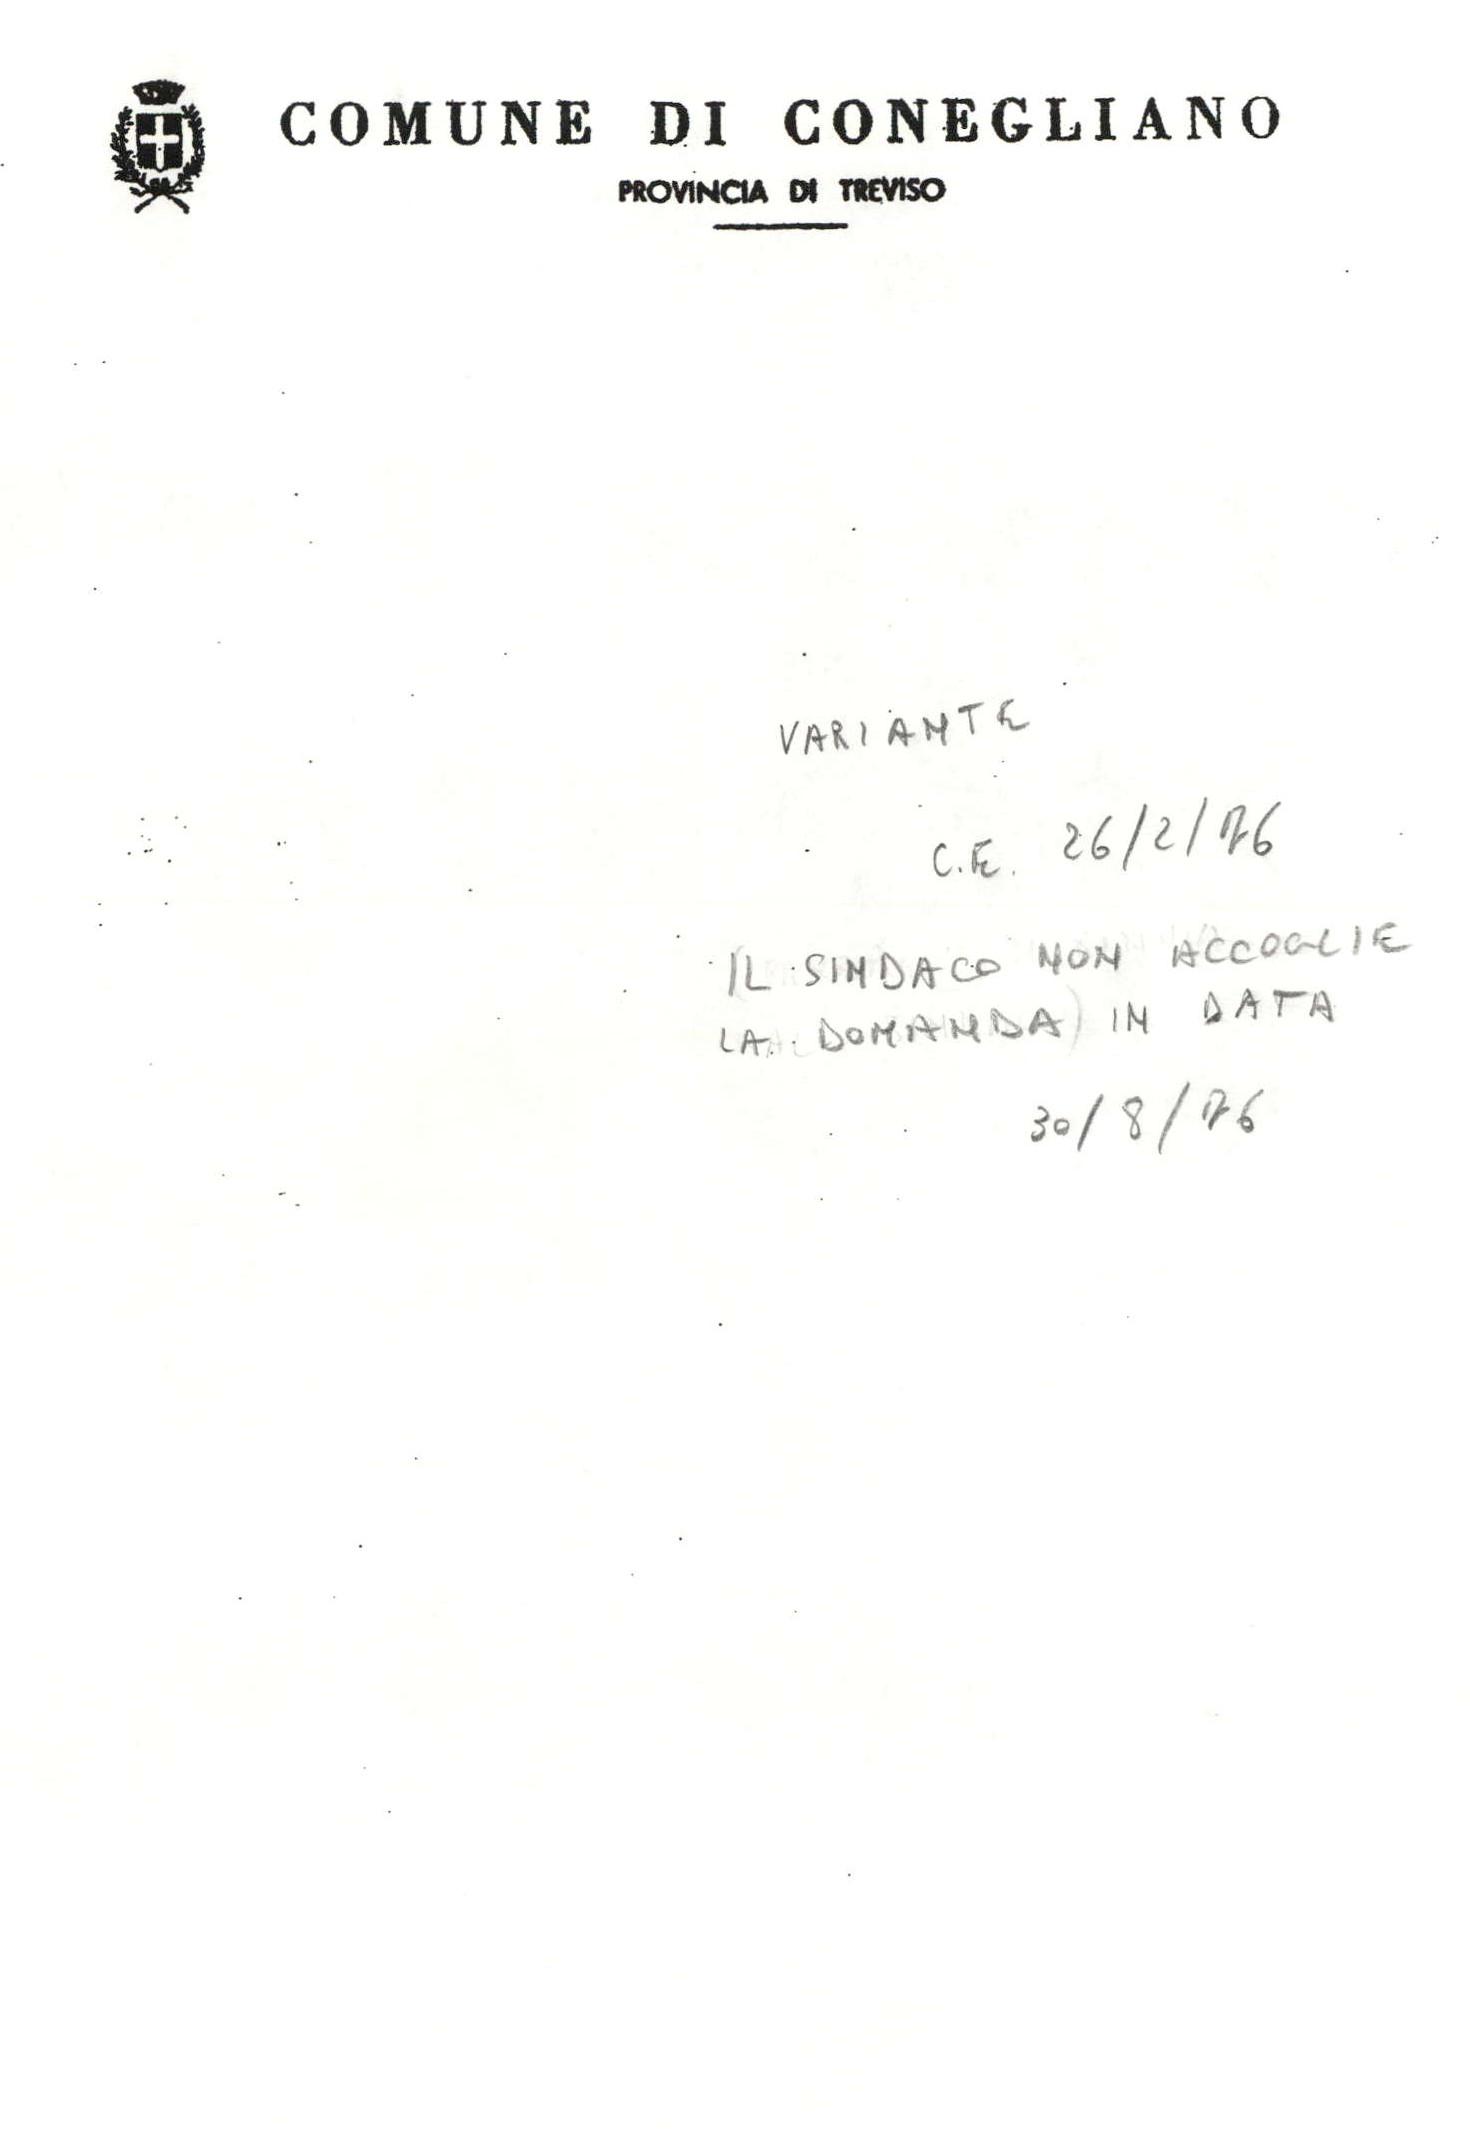 COMUNE DI CONEGLIANO
PROVINCIA DI TREVISO
VARIANTE
C.E. 26/2/76
IL SINDACO NON ACCOGLIE
LA DOMANDA) IN DATA
30/8/76